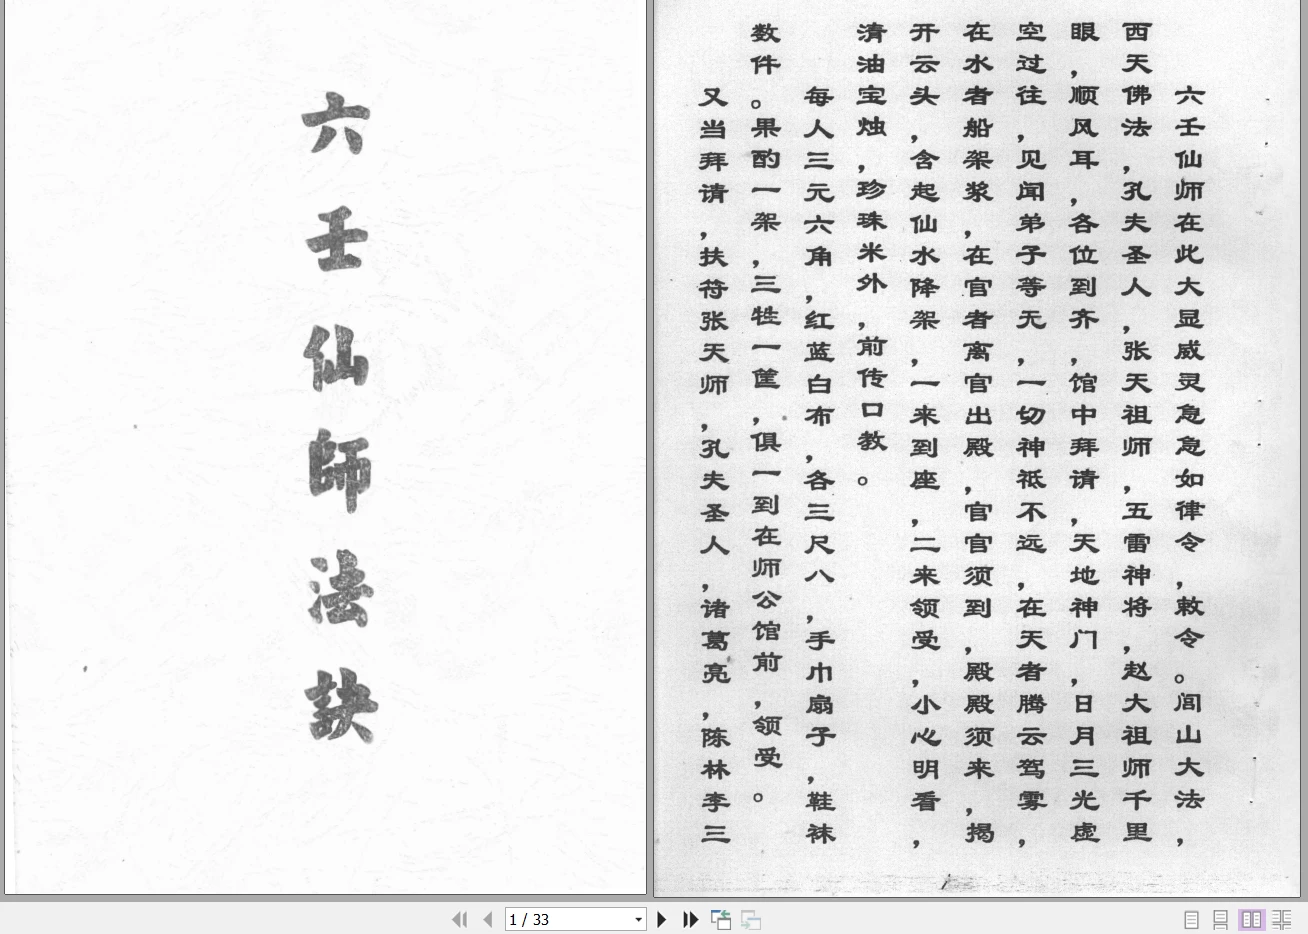 六壬仙師法訣
六壬仙师在此大显威灵急急如律令，敕令。闾山大法，
西天佛法，孔夫圣人，张天祖师，五雷神将，赵大祖师千里
眼，顺风耳，各位到齐，馆中拜请，天地神门，日月三光虚
空过往，见闻弟子等无，一切神祇不远，在天者腾云驾雾，
在水者船架浆，在官者离官出殿，官官须到，殿殿须来，揭
开云头，含起仙水降架，一来到座，二来领受，小心明看，
清油宝烛，珍珠米外，前传口教。
每人三元六角，红蓝白布，各三尺八，手巾扇子，鞋袜
数件。果酌一架，三牲一筐，俱一到在师公馆前，领受。
又当拜请，扶符张天师，孔夫圣人，诸葛亮，陈林李三
1 / 33